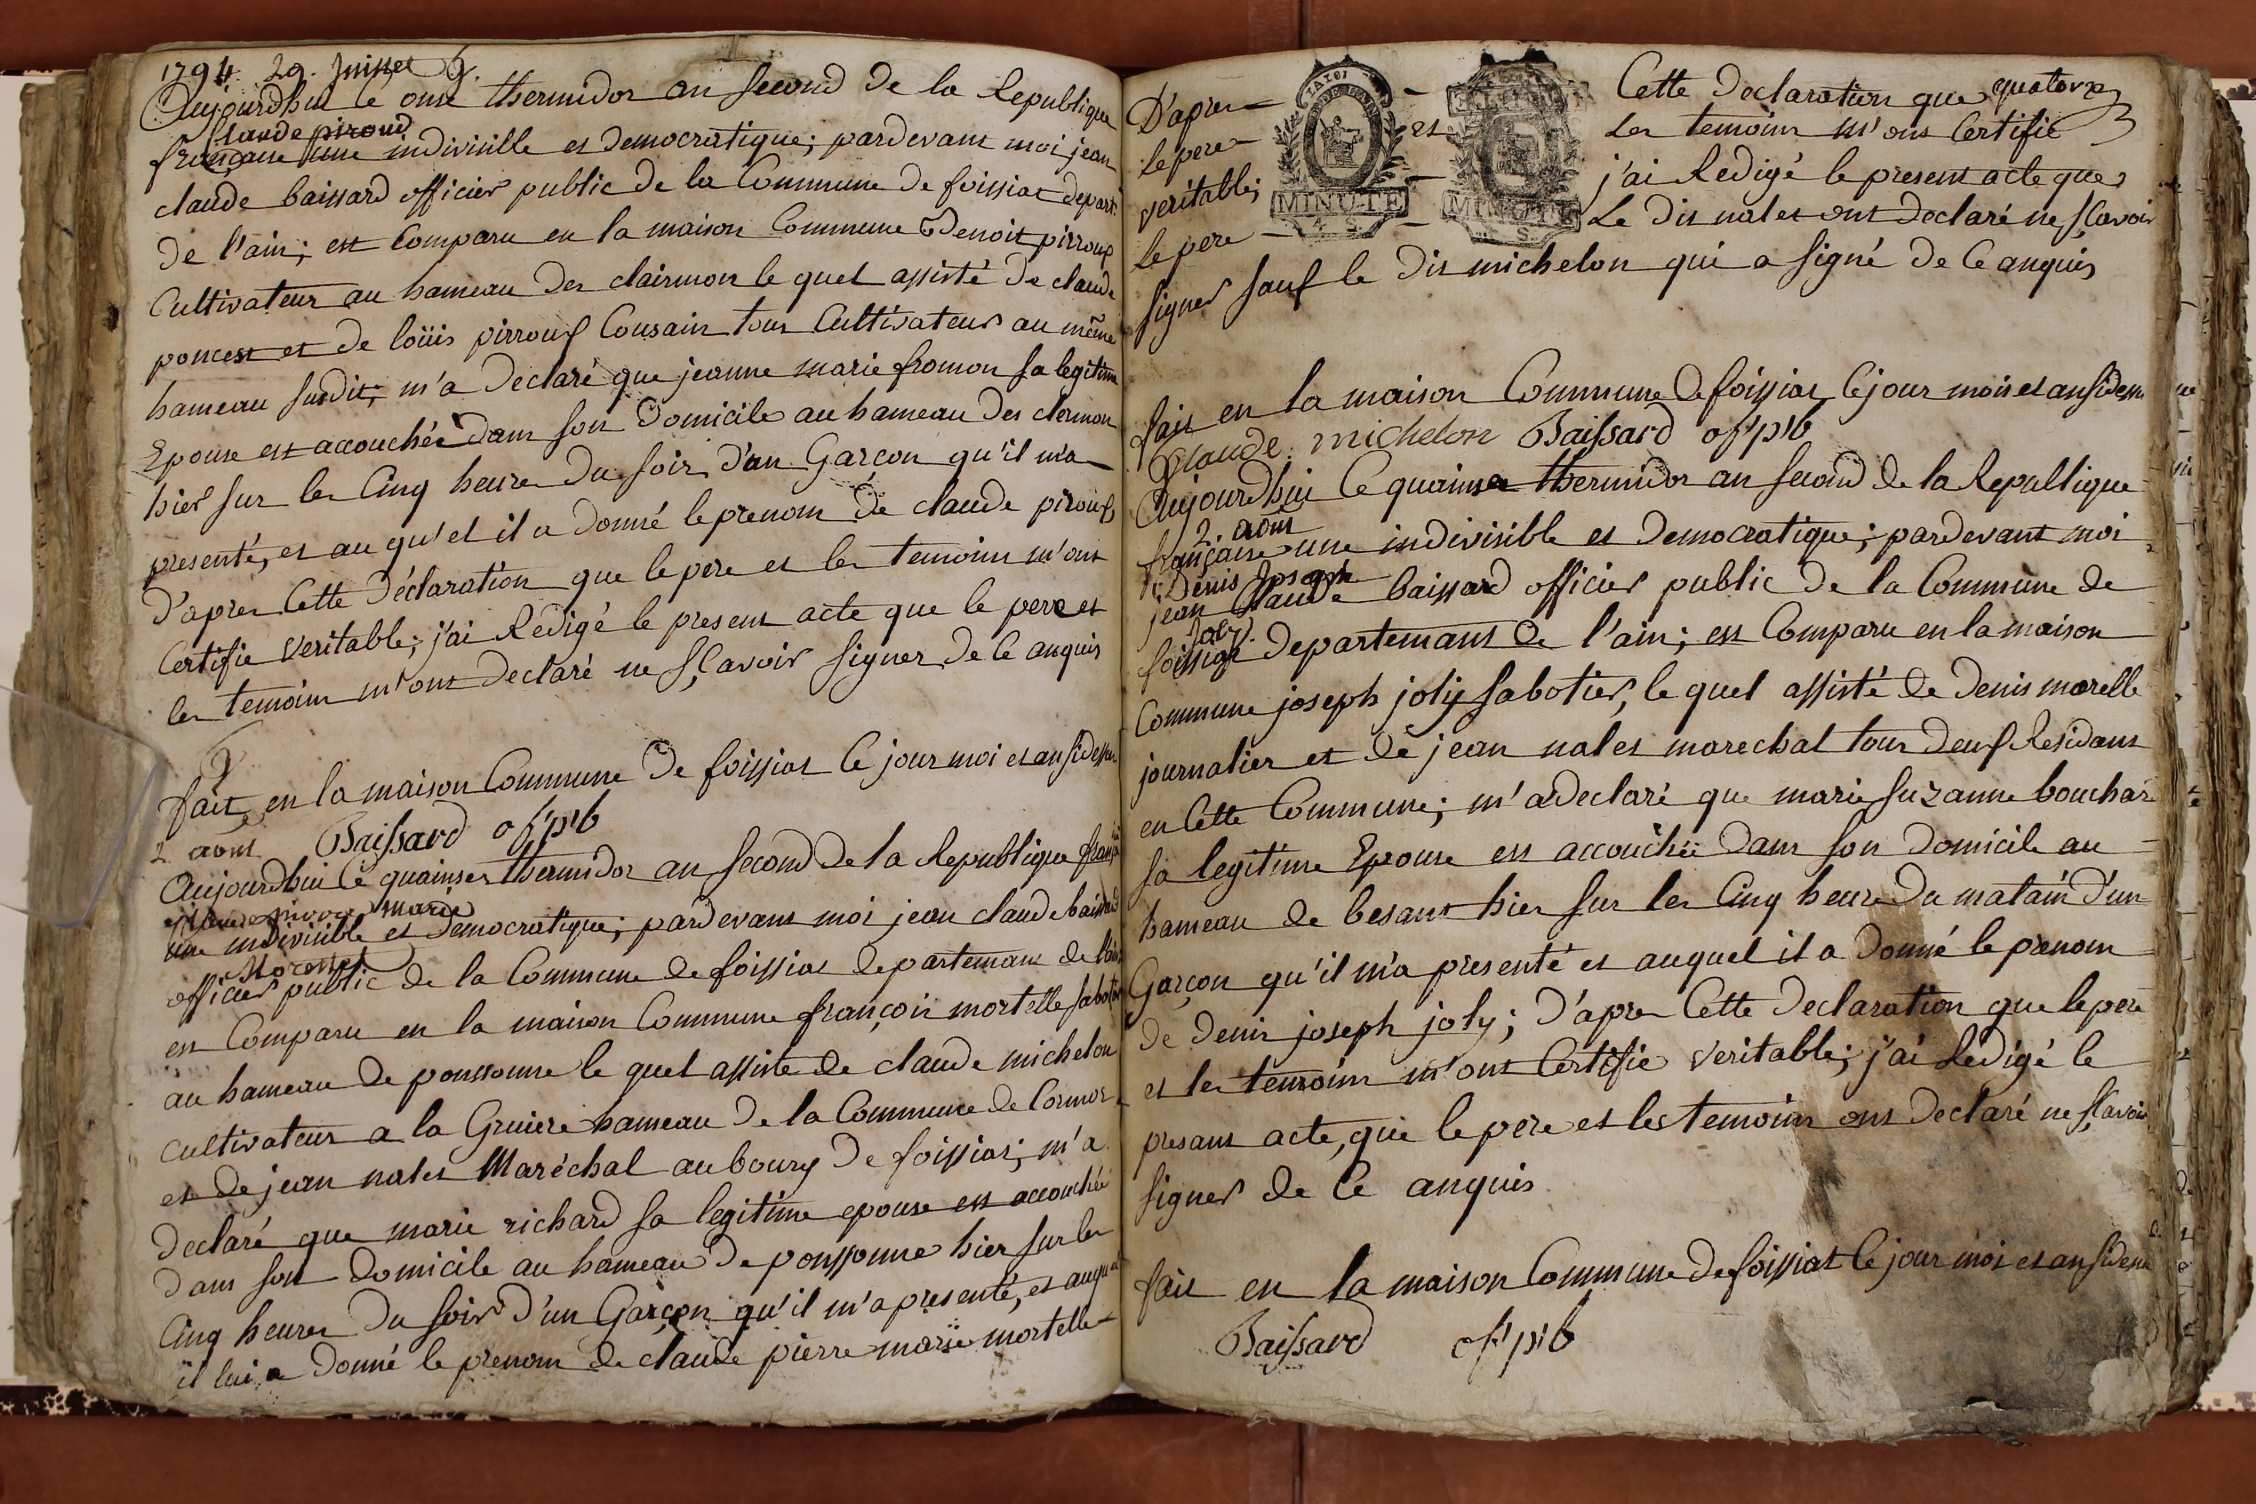 1794. 29. Juillet
Aujourdhui ce onse thermidor an second de la Republique
Claude piroud
française une indivisible et democratique; pardevant moi jean
claude baissard officier public de la Commune de foissiat depart.
de l'ain; est Comparu en la maison Commune Benoit pirrouf
Cultivateur au hameau des clairmon le quel assisté de claude
poncest et de loüis pirrouf Cousain tous Cultivateur au même
hameau susdit; m'a declaré que jeanne marie fromon sa legitime
Epouse est accouchée dans son domicile au hameau des clermon
hier sur les Cinq heure du soir d'un Garcon qu'il m'a
presenté, et au qu'el il a donné le prenom de claude pirouf
d'apres Cette déclaration que le pere et les temoins m'ont
Certifie veritable; j'ai Redigé le present acte que le pere et
les temoins m'ont declaré ne sçavoir signer de ce anquis
fait en la maison Commune de foissiat ce jour moi et an sidessus
Baissard of. p.b
2 août
Aujourdhui ce quainse thermidor an second de la Republique française
Claude pierre marie
une indivisible et democratique; pardevant moi jean claude baissard
officier public de la Commune de foissiat departemant de l'ain
est Comparu en la maison Commune françois mortelle sabotier
au hameau de poussonne le quel assiste de claude michelon
cultivateur a la Gruiere hameau de la Commune de Cormoz
et de jean nalet Maréchal au bourg de foissiat; m'a
declaré que marie richard sa legitime epouse est accouchée
dans son domicile au hameau de poussonne hier sur les
Cinq heures du soir d'un Garçon qu'il m'a presenté, et auquel
il lui a donné le prenom de claude pierre marie mortelle
D'apres Cette declaration que quatorze
le pere et les temoins m'ont Certifié
veritable; j'ai Redigé le present acte que
le pere Le dit nalet ont declaré ne sçavoir
signer sauf le dit michelon qui a signé de ce anquis
MINUTE
MINUTE
fait en la maison Commune de foissiat ce jour mois et an sidessu
Claude michelon Baissard of. p.b
Aujourdhui ce quainse thermidor an second de la Republique
2. août
française une indivisible et democratique; pardevant moi
Denis Joseph
jean Claude baissard officier public de la Commune de
Joly.
foissiat departemant de l'ain; est Comparu en la maison
Commune joseph joly sabotier, le quel assisté de denis morelle
journalier et de jean nalet marechal tous deuf Residant
en Cette Commune; m'a declaré que marie suzanne bouchar
sa legitime Epouse est accouchée dans son domicile au
hameau de besant hier sur les Cinq heure du matain d'un
Garçon qu'il m'a presenté et auquel il a donné le prenom
de denis joseph joly; d'apres Cette declaration que le pere
et les temoins m'ont Certifie veritable; j'ai Redigé le
presant acte, que le pere et les temoins ont declaré ne sçavoir
signer de ce anquis
fait en la maison Commune de foissiat ce jour mois et an sidessu
Baissard of. p.b